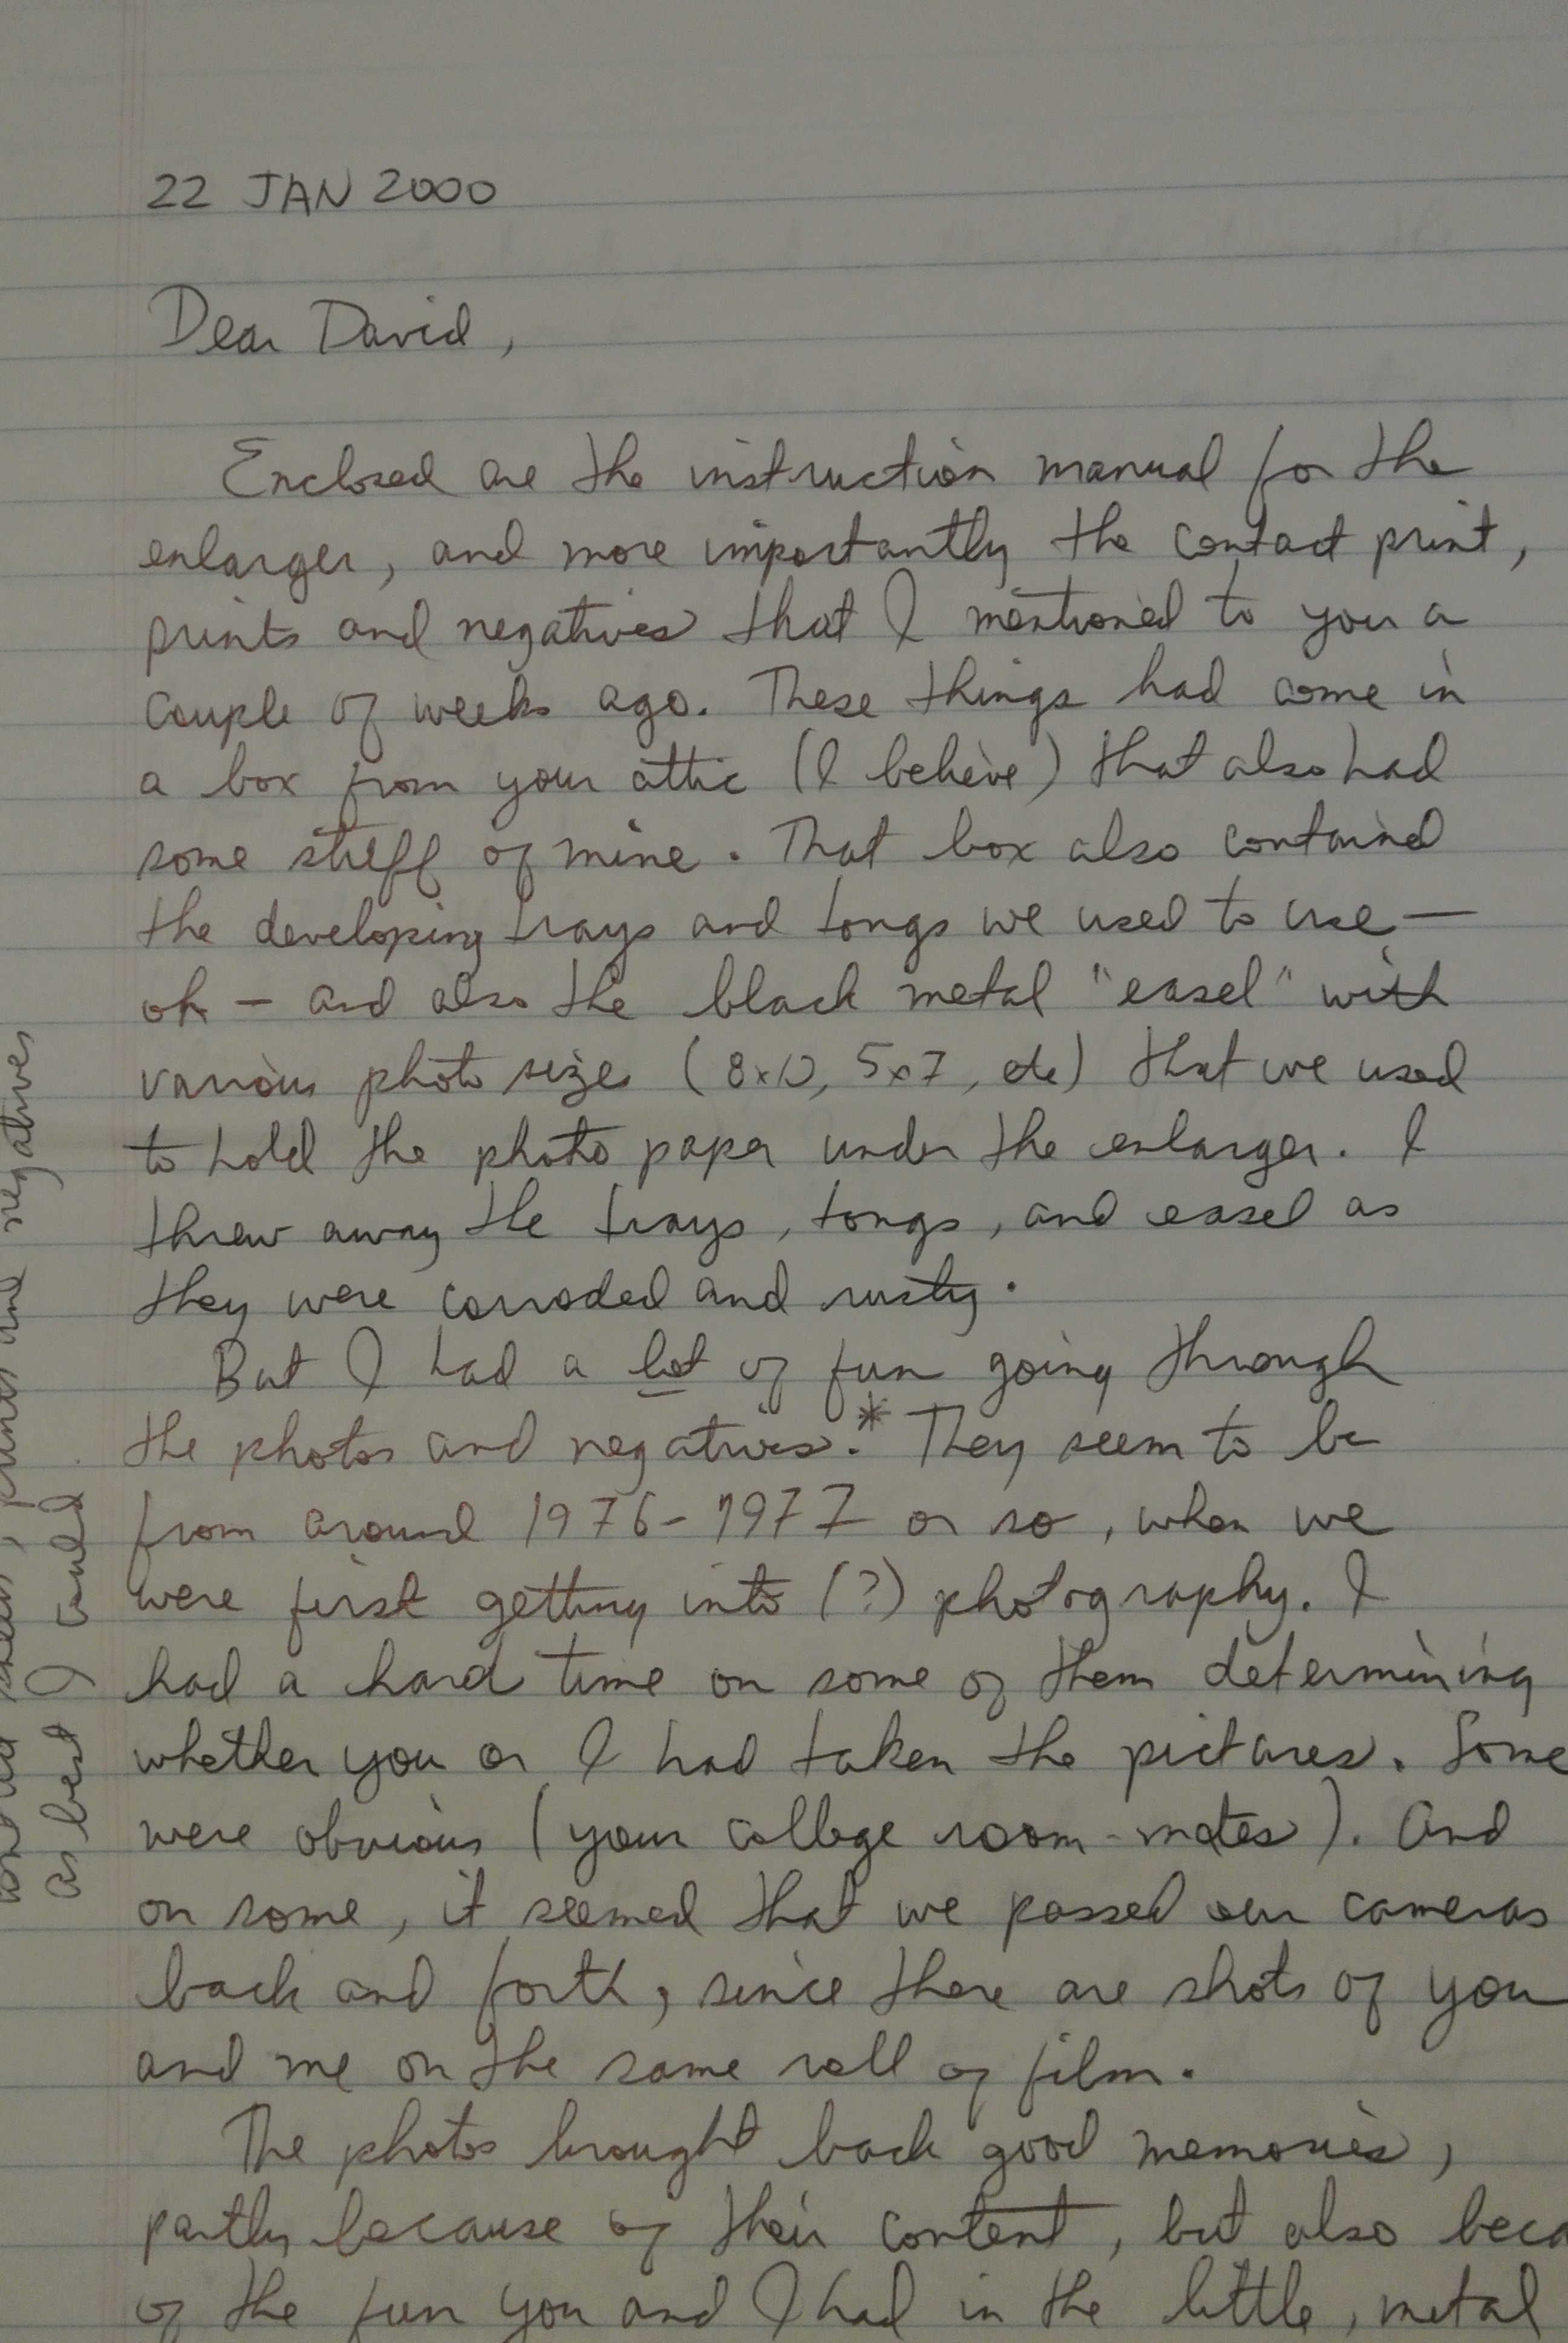 22 JAN 2000
Dear David,
Enclosed are the instruction manual for the
enlarger, and more importantly the contact print,
prints and negatives that I mentioned to you a
couple of weeks ago. These things had come in
a box from your attic (I believe) that also had
some stuff of mine. That box also contained
the developing trays and tongs we used to use —
oh — and also the black metal "easel" with
various photo sizes (8x10, 5x7, etc) that we used
to hold the photo paper under the enlarger. I
threw away the trays, tongs, and easel as
they were corroded and rusty.
But I had a lot of fun going through
the photos and negatives.* They seem to be
from around 1976-1977 or so, when we
were first getting into (?) photography. I
had a hard time on some of them determining
whether you or I had taken the pictures. Some
were obvious (your college room-mates). And
on some, it seemed that we passed our cameras
back and forth, since there are shots of you
and me on the same roll of film.
The photos brought back good memories,
partly because of their content, but also beca
of the fun you and I had in the little, metal
prints and negatives
as best I could